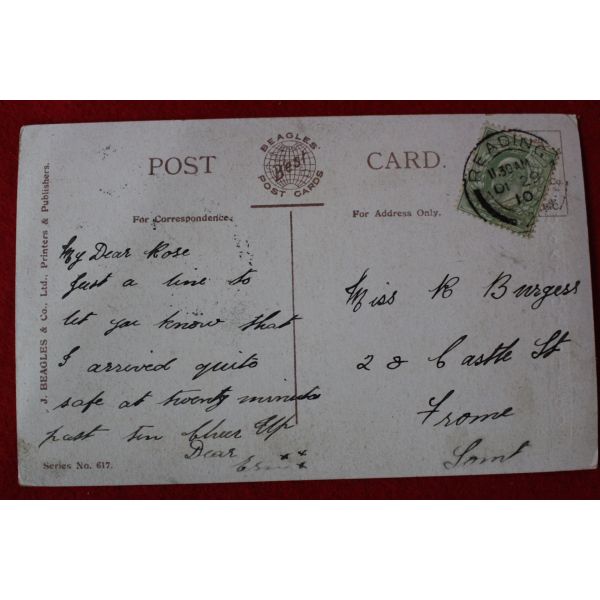 POST CARD.
BEAGLES'
"Best"
POST CARDS
For Correspondence.
For Address Only.
J. BEAGLES & Co., Ltd., Printers & Publishers.
READING
11.30AM
10
My Dear Rose
Just a line to
let you know that
I arrived quite
safe at twenty minutes
past ten Cheer Up
Dear
Miss R Burgess
2 & Castle St
Frome
Somt
Series No. 617.